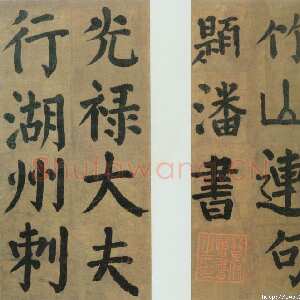 竹山連句
題潘書
光禄大夫
行湖州刺
Shufawang.CN